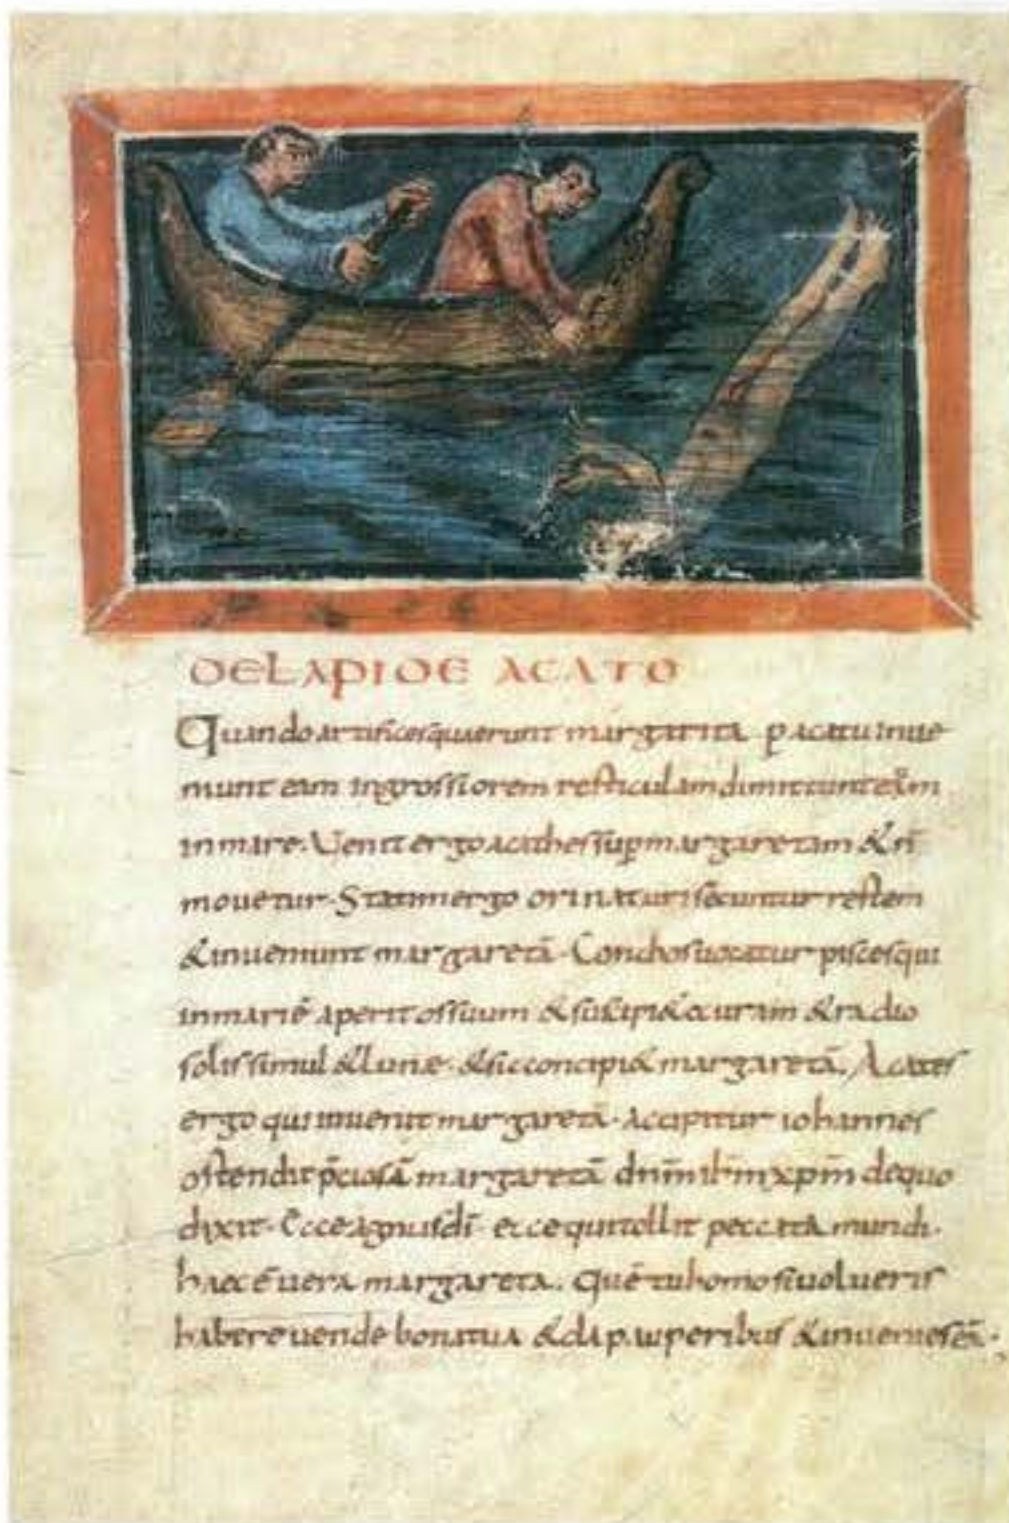 DE LAPIDE ACATO
Quando artifices querunt margarita p acatu inue
niunt eam in grossiorem resticulam dimittunt
in mare. Uenit ergo acathes sup margaretam & n̄
mouetur. Statim ergo orinaturi secuntur restem
& inueniunt margaretā. Conchos uocatur pisces qui
in mari ē aperit os suum & suscipi& & radio
solis simul & lunae. & sic concipi& margaretā. Acates
ergo qui inuenit margaretā. accipitur iohannes
ostendit p̄ciosā margaretā dn̄m ih̄m xp̄m de quo
dixit. Ecce agnus dī. ecce qui tollit peccata mundi.
haec ē uera margareta. Quē tu homo si uolueris
habere uende bona tua & da pauperibus & inuenies eā.